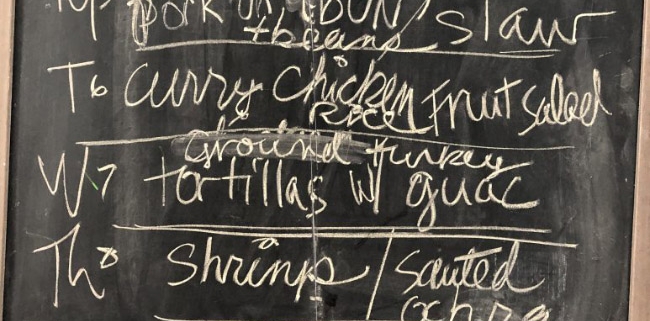 Pork on BUN/
+beans Slaw
T6 Curry Chicken Fruit Salad
Rice
Ground turkey
W7 tortillas w/ guac
Th8 Shrimp / Sauted